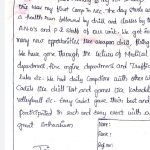 This was my first camp in NCC. The day starts with
a health run followed by drill and classes by the
ANO's and P.I staffs of our unit. We get to
many new opportunities like weapon drill, firing
We have gone through the lectures of Medical
department, fire engine department and Traffic
rules etc. We had daily competitions with other
Cadets like drill Test and games like kabaddi
volleyball etc. Every cadet gave their best and
participated in each and every event with a
great enthusiasm
Name:
Rank:
Signed: